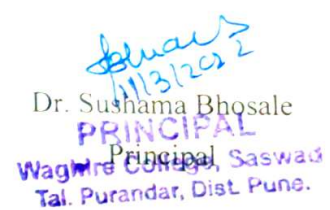 11/3/2022
Dr. Sushama Bhosale
PRINCIPAL
Principal
Waghire College, Saswad
Tal. Purandar, Dist. Pune.